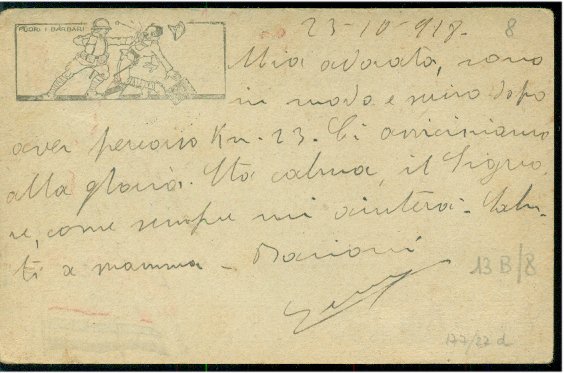 FUORI I BARBARI
23-10-918. 8
Mia adorata, sono
in moto e scrivo dopo
aver percorso Km. 23. Ci avviciniamo
alla gloria. Sta calma, il Signo
re, come sempre mi aiuterà. Salu-
ti a mamma - Bacioni
13 B/8
177/27 d